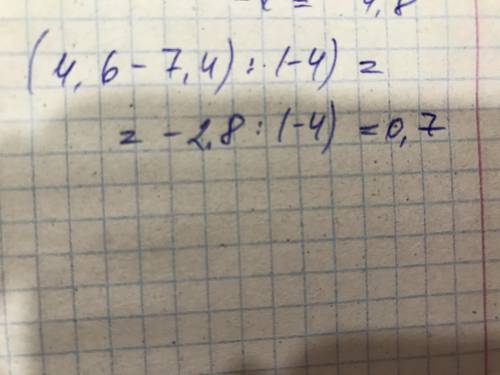 (4,6 - 7,4) : (-4) =
= - 2,8 : (-4) = 0,7